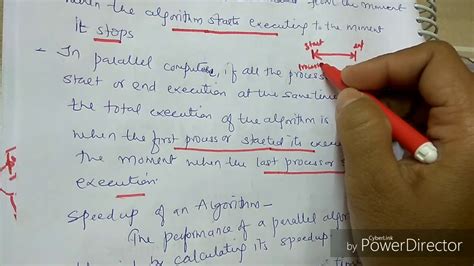 when the algorithm starts executing to the moment
it stops
- In parallel computer, if all the process
start end
start or end execution at the same time
the total execution of the algorithm is
when the first processor started its exec
the moment when the last processor
execution
Speedup of an Algorithm-
The performance of a parallel algor
by calculating its speedup
CyberLink
by PowerDirector